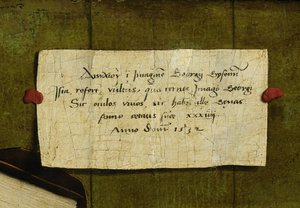 Δίστιχον ī Imaginē Georgij Gysenij
Ista refert vultus, quā cernis, Imago Georgi
Sic oculos viuos, sic habet ille Genas
Anno ætatis suæ xxxiiij
Anno Dom 1532